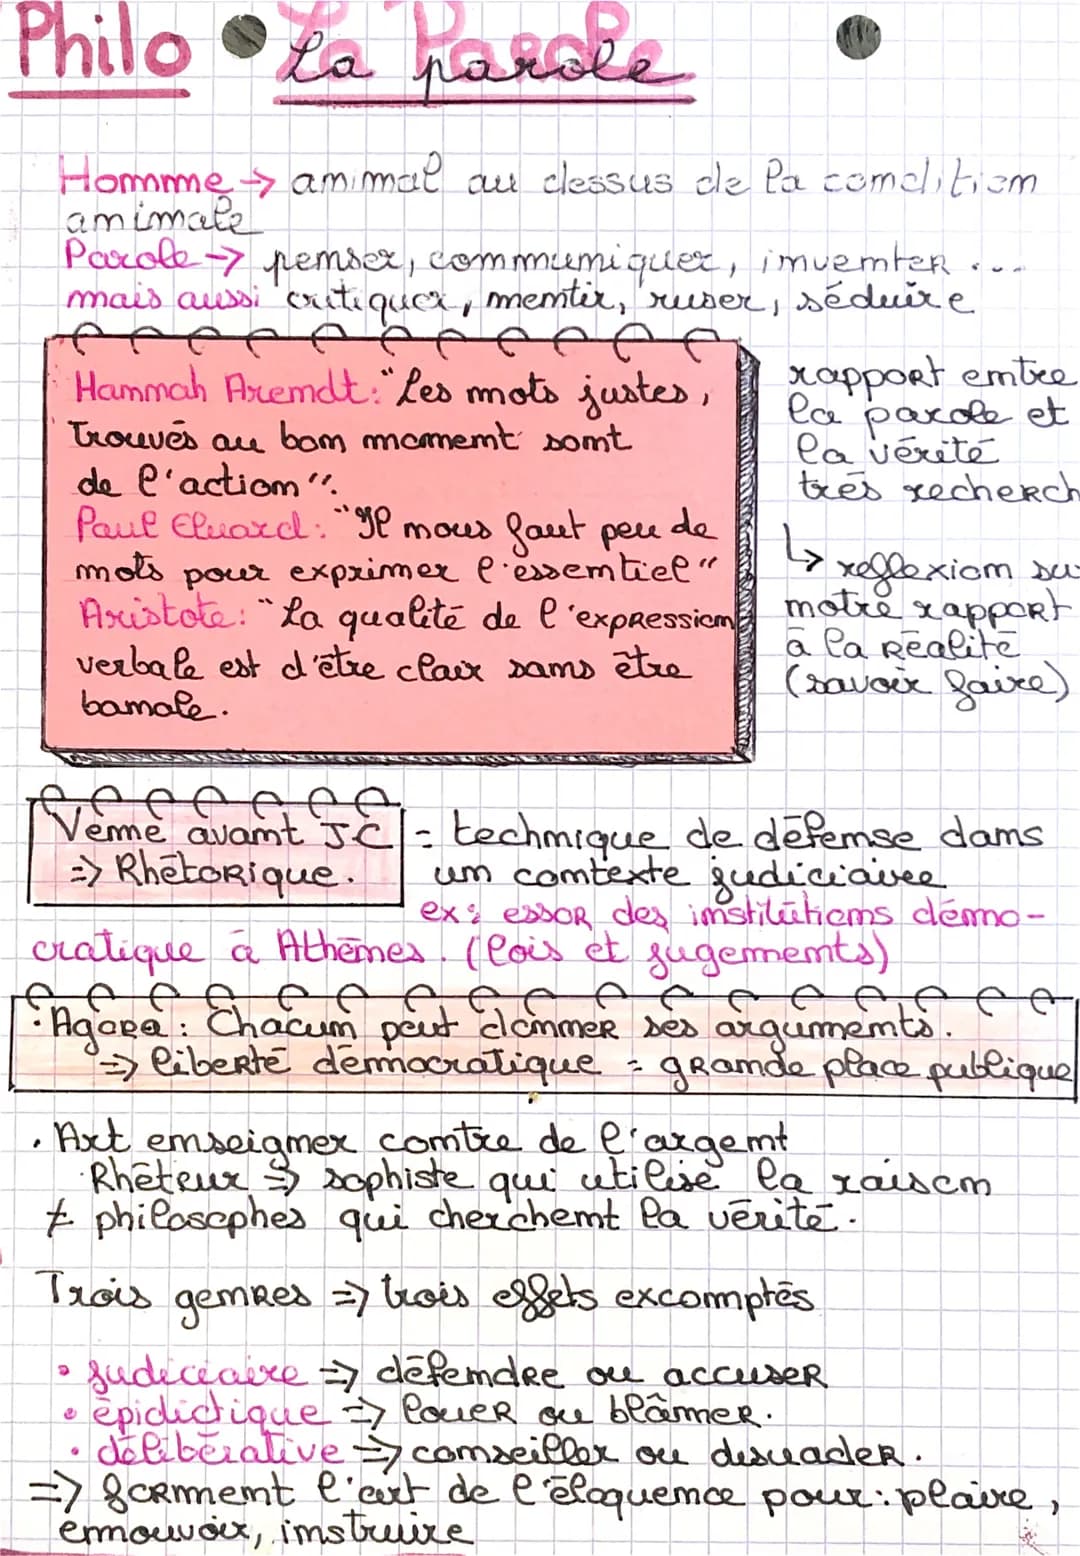 Philo • La Parole
Homme → animal au dessus de la condition
animale
Parole → penser, communiquer, inventer ...
mais aussi critiquer, mentir, ruser, séduire
Hannah Arendt : "Les mots justes,
trouvés au bon moment sont
de l'action".
Paul Eluard : "Il nous faut peu de
mots pour exprimer l'essentiel"
Aristote : "La qualité de l'expression
verbale est d'être clair sans être
banale.
rapport entre
la parole et
la vérité
très recherch
↳ reflexion su
notre rapport
à la réalité
(savoir faire)
Vème avant J.C
=> Rhétorique.
= technique de défense dans
un contexte judiciairee
ex : essor des institutions démo-
cratique à Athènes. (lois et jugements)
• Agora : Chacun peut donner ses arguments.
=> liberté démocratique = grande place publique
• Art enseigner contre de l'argent
Rhéteur => sophiste qui utilise la raison
≠ philosophes qui cherchent la vérité.
Trois genres => trois effets excomptés
• judiciaire => défendre ou accuser
• épidictique => louer ou blâmer.
• délibérative => conseiller ou disuader.
=> forment l'art de l'éloquence pour : plaire,
emouvoir, instruire